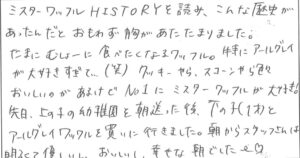 ミスターワッフル HISTORYを読み、こんな歴史が
あったんだと おもわず 胸が あたたまりました。
たまに むしょーに 食べたくなるワッフル。特に アールグレイ
が 大好きすぎて…(笑) クッキーやら、スコーンやら色々
おいしいのが あるけど No1に ミスターワッフルが 大好き!
先日、上の子の幼稚園を 朝送った後、下の子(1才)と
アールグレイワッフルを 買いに行きました。朝から スタッフさんは
明るくて 優しいし、おいしいし、幸せな朝でした